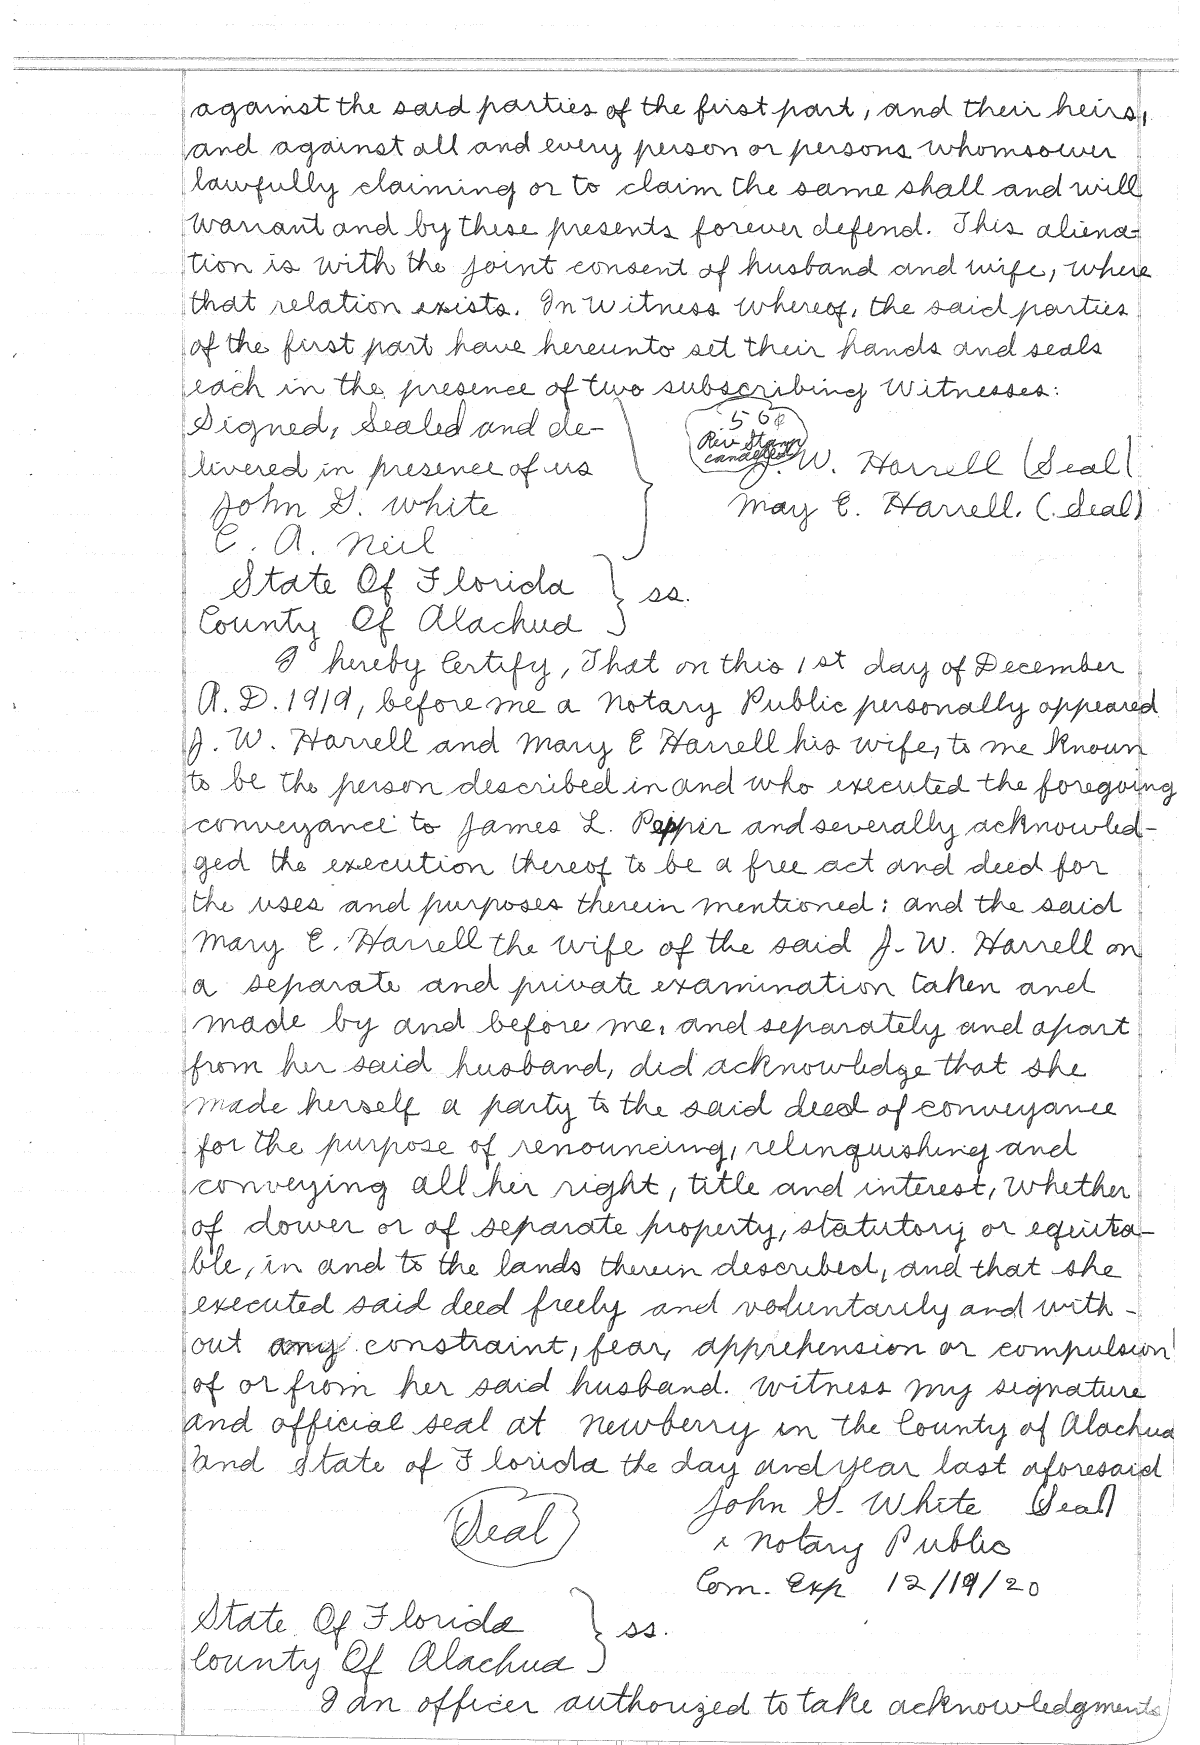 against the said parties of the first part, and their heirs,
and against all and every person or persons whomsoever
lawfully claiming or to claim the same shall and will
warrant and by these presents forever defend. This aliena-
tion is with the joint consent of husband and wife, where
that relation exists. In Witness whereof, the said parties
of the first part have hereunto set their hands and seals
each in the presence of two subscribing Witnesses:
Signed, Sealed and de-
livered in presence of us
John G. White
C. A. Neil
50¢
Rev Stamp
cancelled
J. W. Harrell (Seal)
May E. Harrell. (Seal)
State Of Florida
County Of Alachua
ss.
I hereby Certify, That on this 1st day of December
A. D. 1919, before me a Notary Public personally appeared
J. W. Harrell and Mary E Harrell his wife, to me known
to be the person described in and who executed the foregoing
conveyance to James L. Pepper and severally acknowled-
ged the execution thereof to be a free act and deed for
the uses and purposes therein mentioned: and the said
Mary E. Harrell the wife of the said J. W. Harrell on
a separate and private examination taken and
made by and before me, and separately and apart
from her said husband, did acknowledge that she
made herself a party to the said deed of conveyance
for the purpose of renouncing, relinquishing and
conveying all her right, title and interest, whether
of dower or of separate property, statutory or equita-
ble, in and to the lands therein described, and that she
executed said deed freely and voluntarily and with-
out any constraint, fear, apprehension or compulsion
of or from her said husband. Witness my signature
and official seal at Newberry in the County of Alachua
and State of Florida the day and year last aforesaid
(Seal)
John G. White (Seal)
Notary Public
Com. Exp 12/19/20
State Of Florida
County Of Alachua
ss.
I an officer authorized to take acknowledgments